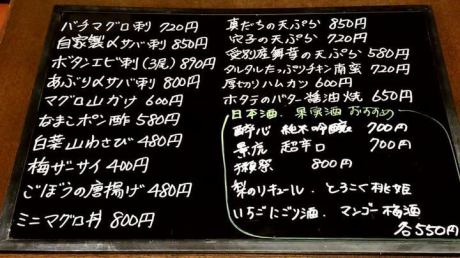 バチマグロ刺 720円
自家製〆サバ刺 850円
ボタンエビ刺(3尾) 890円
あぶり〆サバ刺 800円
マグロ山かけ 600円
なまこポン酢 580円
白葉山わさび 480円
梅ザーサイ 400円
ごぼうの唐揚げ 480円
ミニマグロ丼 800円
真だちの天ぷら 850円
穴子の天ぷら 720円
愛別産舞茸の天ぷら 580円
タルタルたっぷりチキン南蛮 720円
厚切りハムカツ 600円
ホタテのバター醤油焼 650円
日本酒、果実酒 おすすめ
酔心 純米吟醸 700円
景虎 超辛口 700円
獺祭 800円
梨のリキュール、とろこく桃姫
いちごにごり酒、マンゴー梅酒
各550円